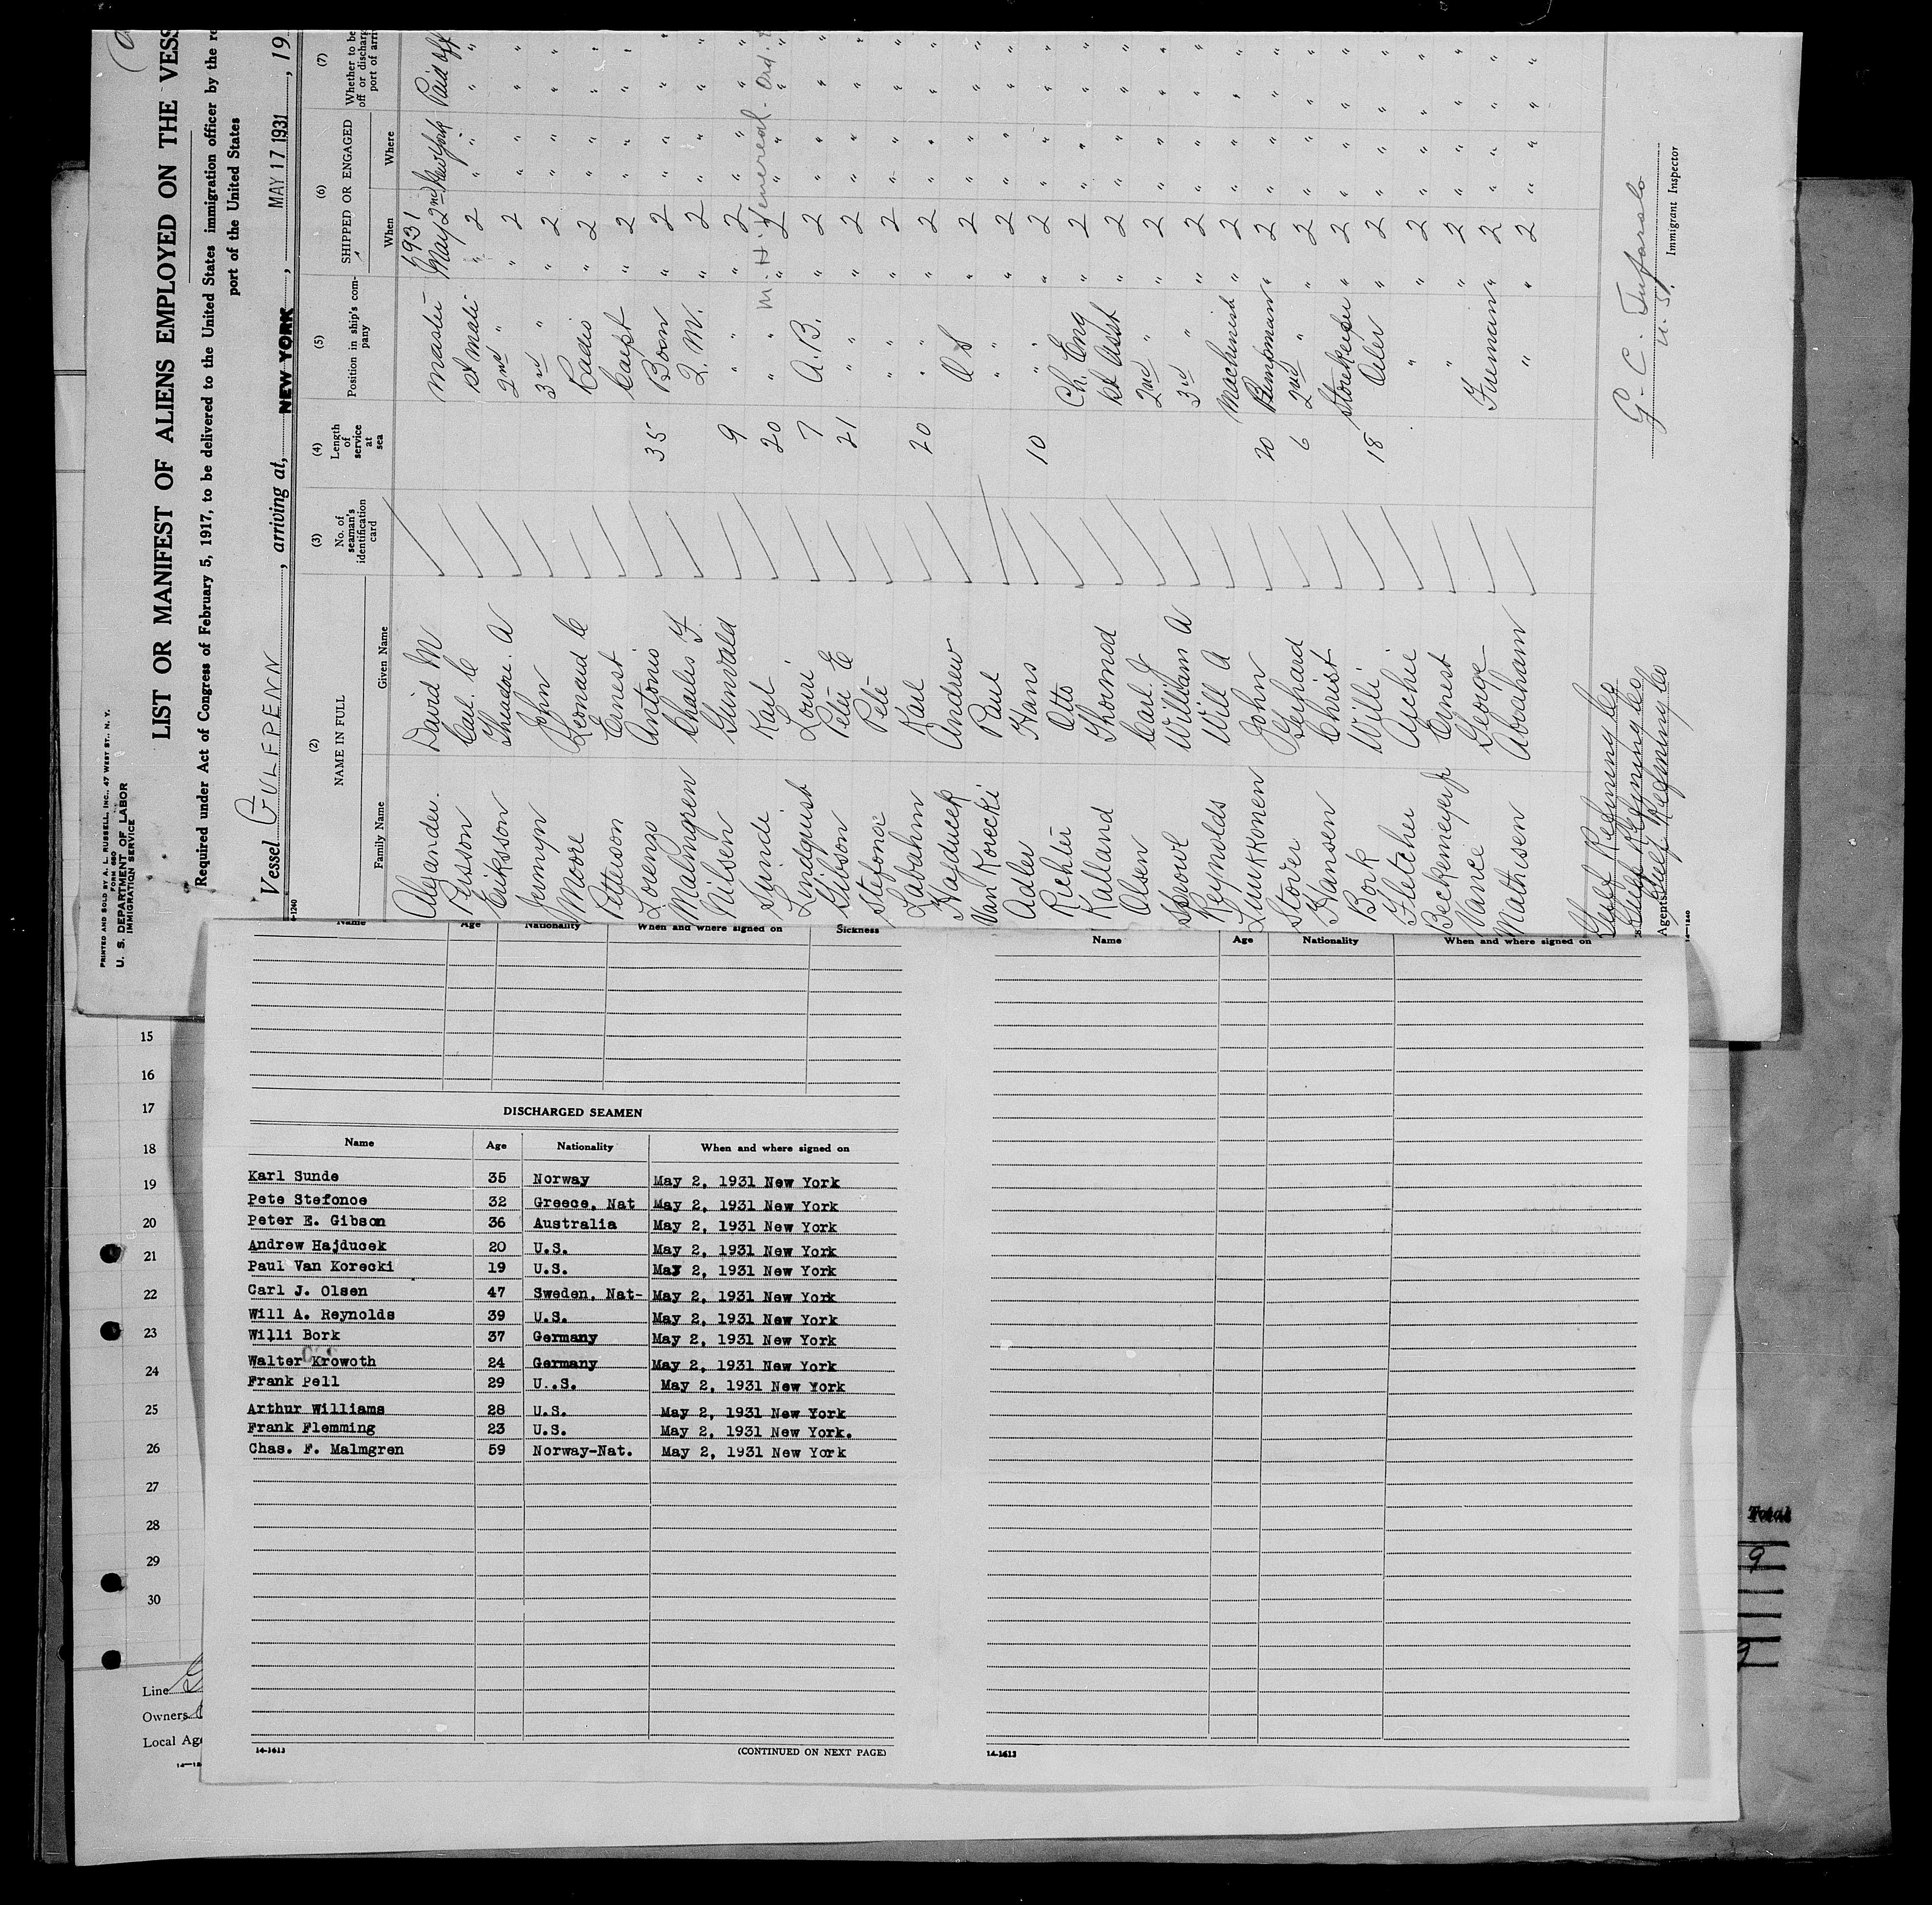 PRINTED AND SOLD BY A. L. RUSSELL, INC., 47 WEST ST., N. Y.
FORM 680
U. S. DEPARTMENT OF LABOR
IMMIGRATION SERVICE
LIST OR MANIFEST OF ALIENS EMPLOYED ON THE VESS
Required under Act of Congress of February 5, 1917, to be delivered to the United States immigration officer by the re
port of the United States
Vessel GULFPENN, arriving at, NEW YORK, MAY 17 1931, 19
(2) (3) (4) (5) (6) (7)
NAME IN FULL No. of seaman's identification card Length of service at sea Position in ship's company SHIPPED OR ENGAGED Whether to be off or discharg port of arri
Family Name Given Name When Where
1931
Alexander. David M Master May 2nd New York Paid off
Sisson Carl. C 1st mate " 2 " " " "
Eriksson Theadore. A 2nd " " 2 " " " "
Jermyn John 3rd " " 2 " " " "
Moore Leonard C Radio " 2 " " " "
Petterson Ernest Carpt " 2 " " " "
Lorenzo Antonio 35 Bosn " 2 " " " "
Malmgren Charles F. Q. M. " 2 " " " "
Nilsen Gunwald 9 " " " 2 " " " "
Sunde Karl 20 " " " 2 " " " "
Lindquist Louri 7 A. B. " 2 " " " "
Gibson Peter E 21 " " " 2 " " " "
Stefonoe Pete " " " 2 " " " "
Labahn Karl 20 " " " 2 " " " "
Hajducek Andrew O S " 2 " " " "
Van Korecki Paul " " " 2 " " " "
Adler Hans 10 " " " 2 " " " "
Richter Otto Ch. Eng " 2 " " " "
Kalland Thormod 1st Asst " 2 " " " "
Olsen Carl J 2nd " " 2 " " " "
Srowl William A 3rd " " 2 " " " "
Reynolds Will A Machinist " 2 " " " "
Luukkonen John 20 Pumpman " 2 " " " "
Stover Gerhard 6 2nd " " 2 " " " "
Hansen Christ Storekeeper " 2 " " " "
Bork Willi 18 Oiler " 2 " " " "
Fletcher Archie " " 2 " " " "
Beckemeyer jr Ernest " " 2 " " " "
Vance George Fireman " 2 " " " "
Mathisen Abraham " " 2 " " " "
M. H. Venereal. Ord.
Gulf Refining Co
Gulf Refining Co
Agents Gulf Refining Co
G. C.
U. S. Immigrant Inspector
14-1240
Name Age Nationality When and where signed on Sickness
Name Age Nationality When and where signed on
DISCHARGED SEAMEN
Name Age Nationality When and where signed on
Karl Sunde 35 Norway May 2, 1931 New York
Pete Stefonoe 32 Greece, Nat May 2, 1931 New York
Peter E. Gibson 36 Australia May 2, 1931 New York
Andrew Hajducek 20 U.S. May 2, 1931 New York
Paul Van Korecki 19 U.S. May 2, 1931 New York
Carl J. Olsen 47 Sweden, Nat- May 2, 1931 New York
Will A. Reynolds 39 U.S. May 2, 1931 New York
Willi Bork 37 Germany May 2, 1931 New York
Walter Krowoth 24 Germany May 2, 1931 New York
Frank Pell 29 U..S. May 2, 1931 New York
Arthur Williams 28 U.S. May 2, 1931 New York
Frank Flemming 23 U.S. May 2, 1931 New York.
Chas. F. Malmgren 59 Norway-Nat. May 2, 1931 New York
14-1613
(CONTINUED ON NEXT PAGE)
14-1613
15
16
17
18
19
20
21
22
23
24
25
26
27
28
29
30
Line
Owners
Local Age
Total
9
9